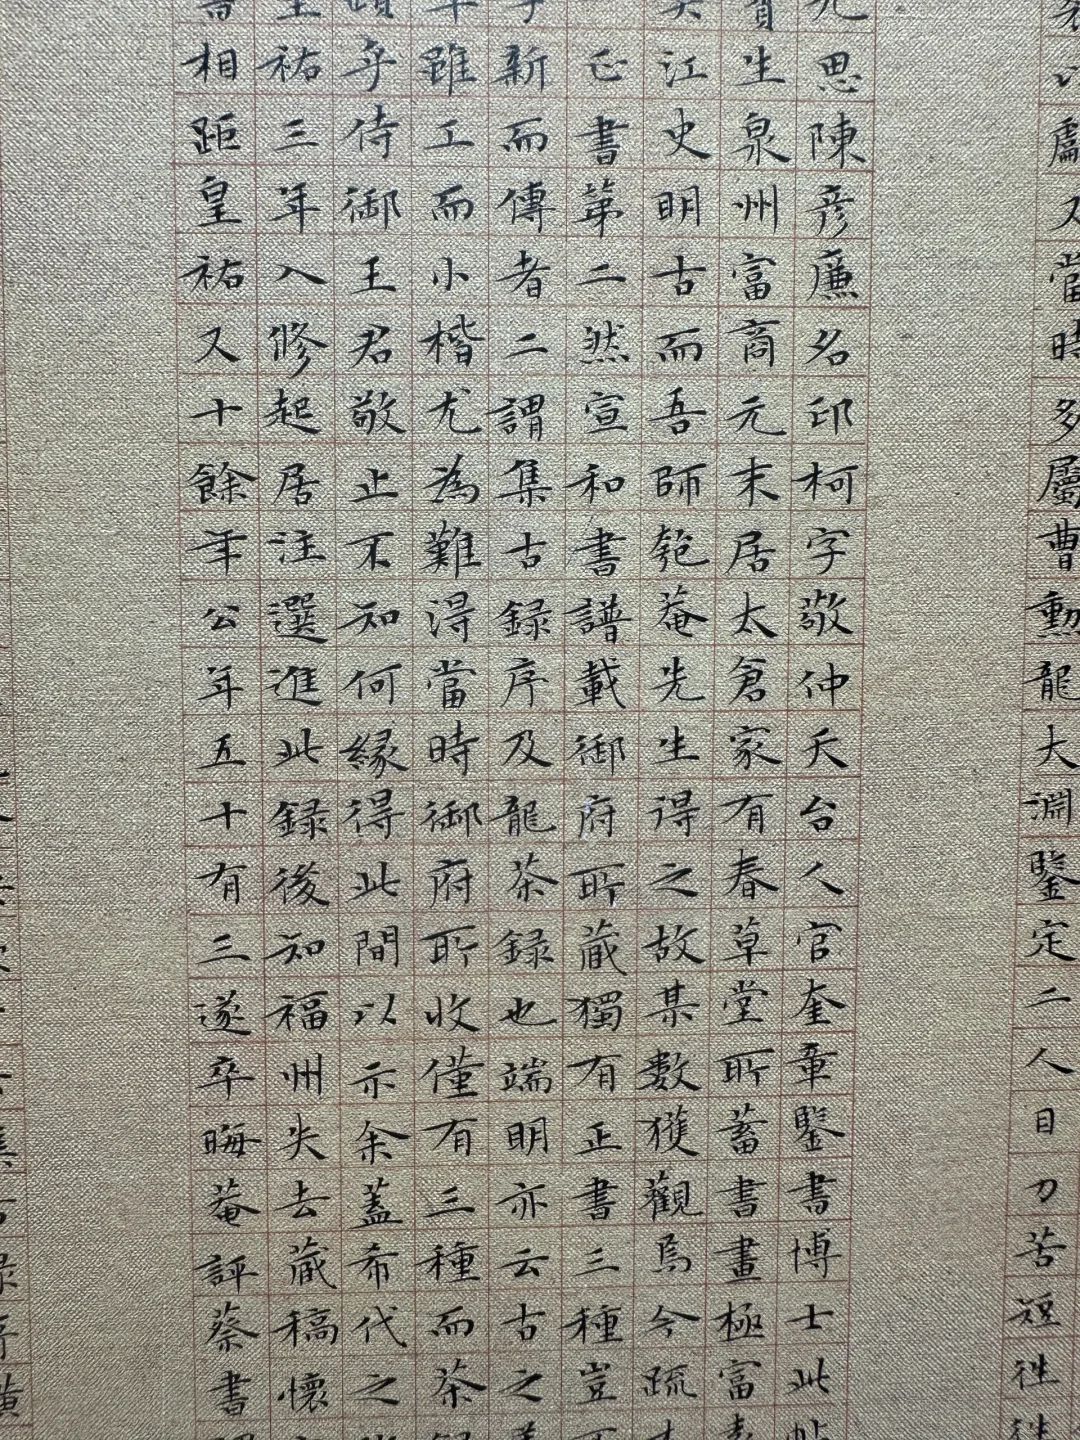 獻又當時多屬曹勲龍大淵鑒定二人目力苦短往往
九思陳彦廉名卭柯字敬仲天台人官奎章鑒書博士此帖
賓生泉州富商元末居太倉家有春草堂所蓄書畫極富
江史明古而吾師匏菴先生得之故某數獲觀焉今疏
正書第二然宣和書譜載御府所藏獨有正書三種豈
新而傳者二謂集古録序及龍茶録也端明亦云古之
雖工而小楷尤為難淂當時御府所收僅有三種而茶
乎侍御王君敬止不知何緣得此間以示余蓋希代之
祐三年入修起居注選進此録後知福州失去藏稿懷
相距皇祐又十餘年公年五十有三遂卒晦菴評蔡書